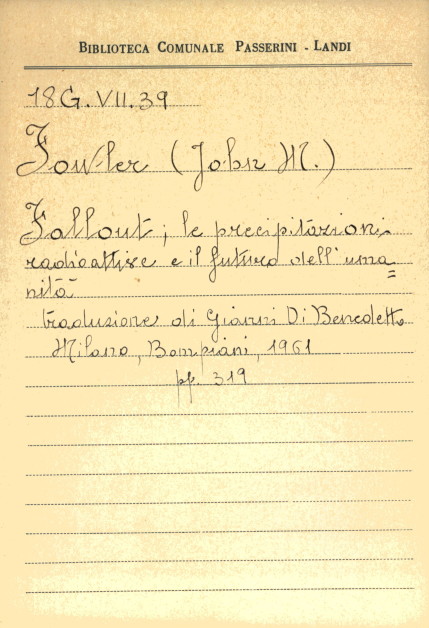 BIBLIOTECA COMUNALE PASSERINI - LANDI
18G.VII.39
Fowler (John M.)
Fallout; le precipitazioni
radioattive e il futuro dell'uma=
nità
traduzione di Gianni Di Benedetto
Milano, Bompiani, 1961
pp. 319